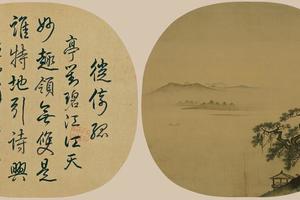 徙倚孤
亭碧江江天
妙趣領無雙是
誰特地引詩興